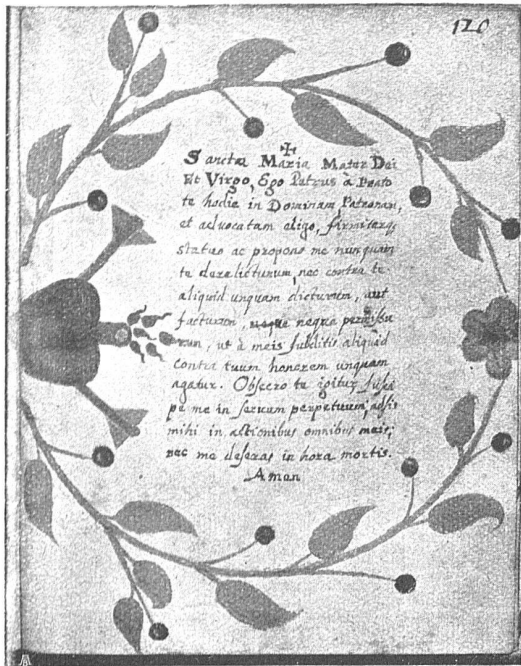 120
✠
Sancta Maria Mater Dei
Et Virgo, Ego Petrus à Prato
te hodie in Dominam Patronam,
et advocatam eligo, firmiterq;
statuo ac propono me nunquam
te derelicturum, nec contra te
aliquid unquam dicturum, aut
facturum, neque permissu
rum, ut à meis subditis aliquid
contra tuum honorem unquam
agatur. Obsecro te igitur, susci
pe me in servum perpetuum, adsis
mihi in actionibus omnibus meis,
nec me deseras in hora mortis.
Amen
A